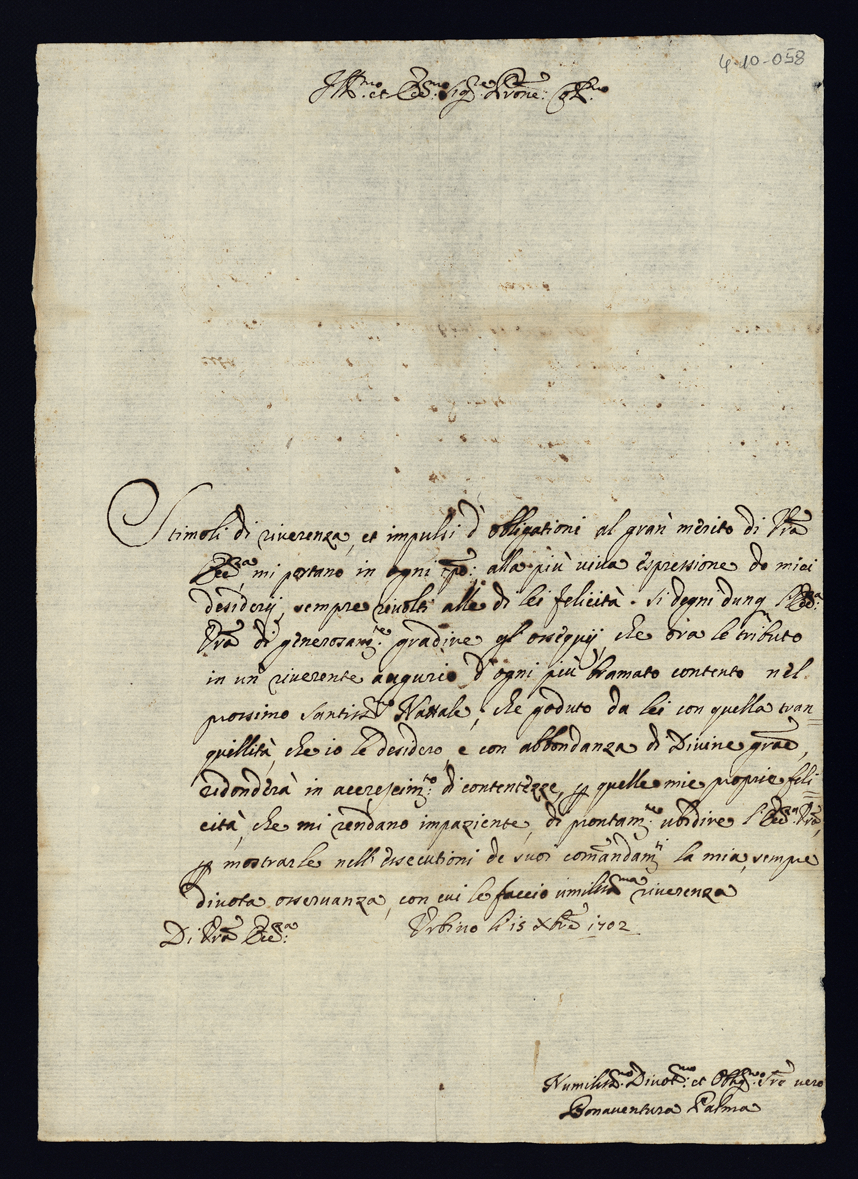 4-10-058
Ill:mo et Ecc:mo Sig:re Prone: Col:mo
Stimoli di riverenza, et impulsi d'obligationi al gran merito di Vra
Ecc:za, mi portano in ogni tpo: alla più viva espressione de miei
desiderij, sempre rivolti alle di lei felicità. Si degni dunq l'Ecc:za
Vra di generosam:te gradire gl'ossequij, che ora le tributo
in un riverente augurio d'ogni più bramato contento nel
prossimo Santiss:o Nattale, che goduto da lei con quella tran=
quillità, che io le desidero, e con abbondanza di Divine grae,
ridonderà in accrescim:to di contentezze, p quelle mie proprie feli=
cità, che mi rendano impaziente, di prontam:te ubidire l'Ecc:a Vra,
p mostrarle nell'essecutioni de suoi comandam:ti la mia, sempre
divota osservanza, con cui le faccio umiliss:ma riverenza
Di Vra Ecc:za Urbino li 15 Xbre 1702
Humiliss:mo Divot:mo et Obbg:mo Sre vero
Bonaventura Palma